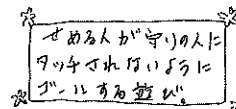 せめる人が守りの人に
タッチされないように
ゴールする遊び。